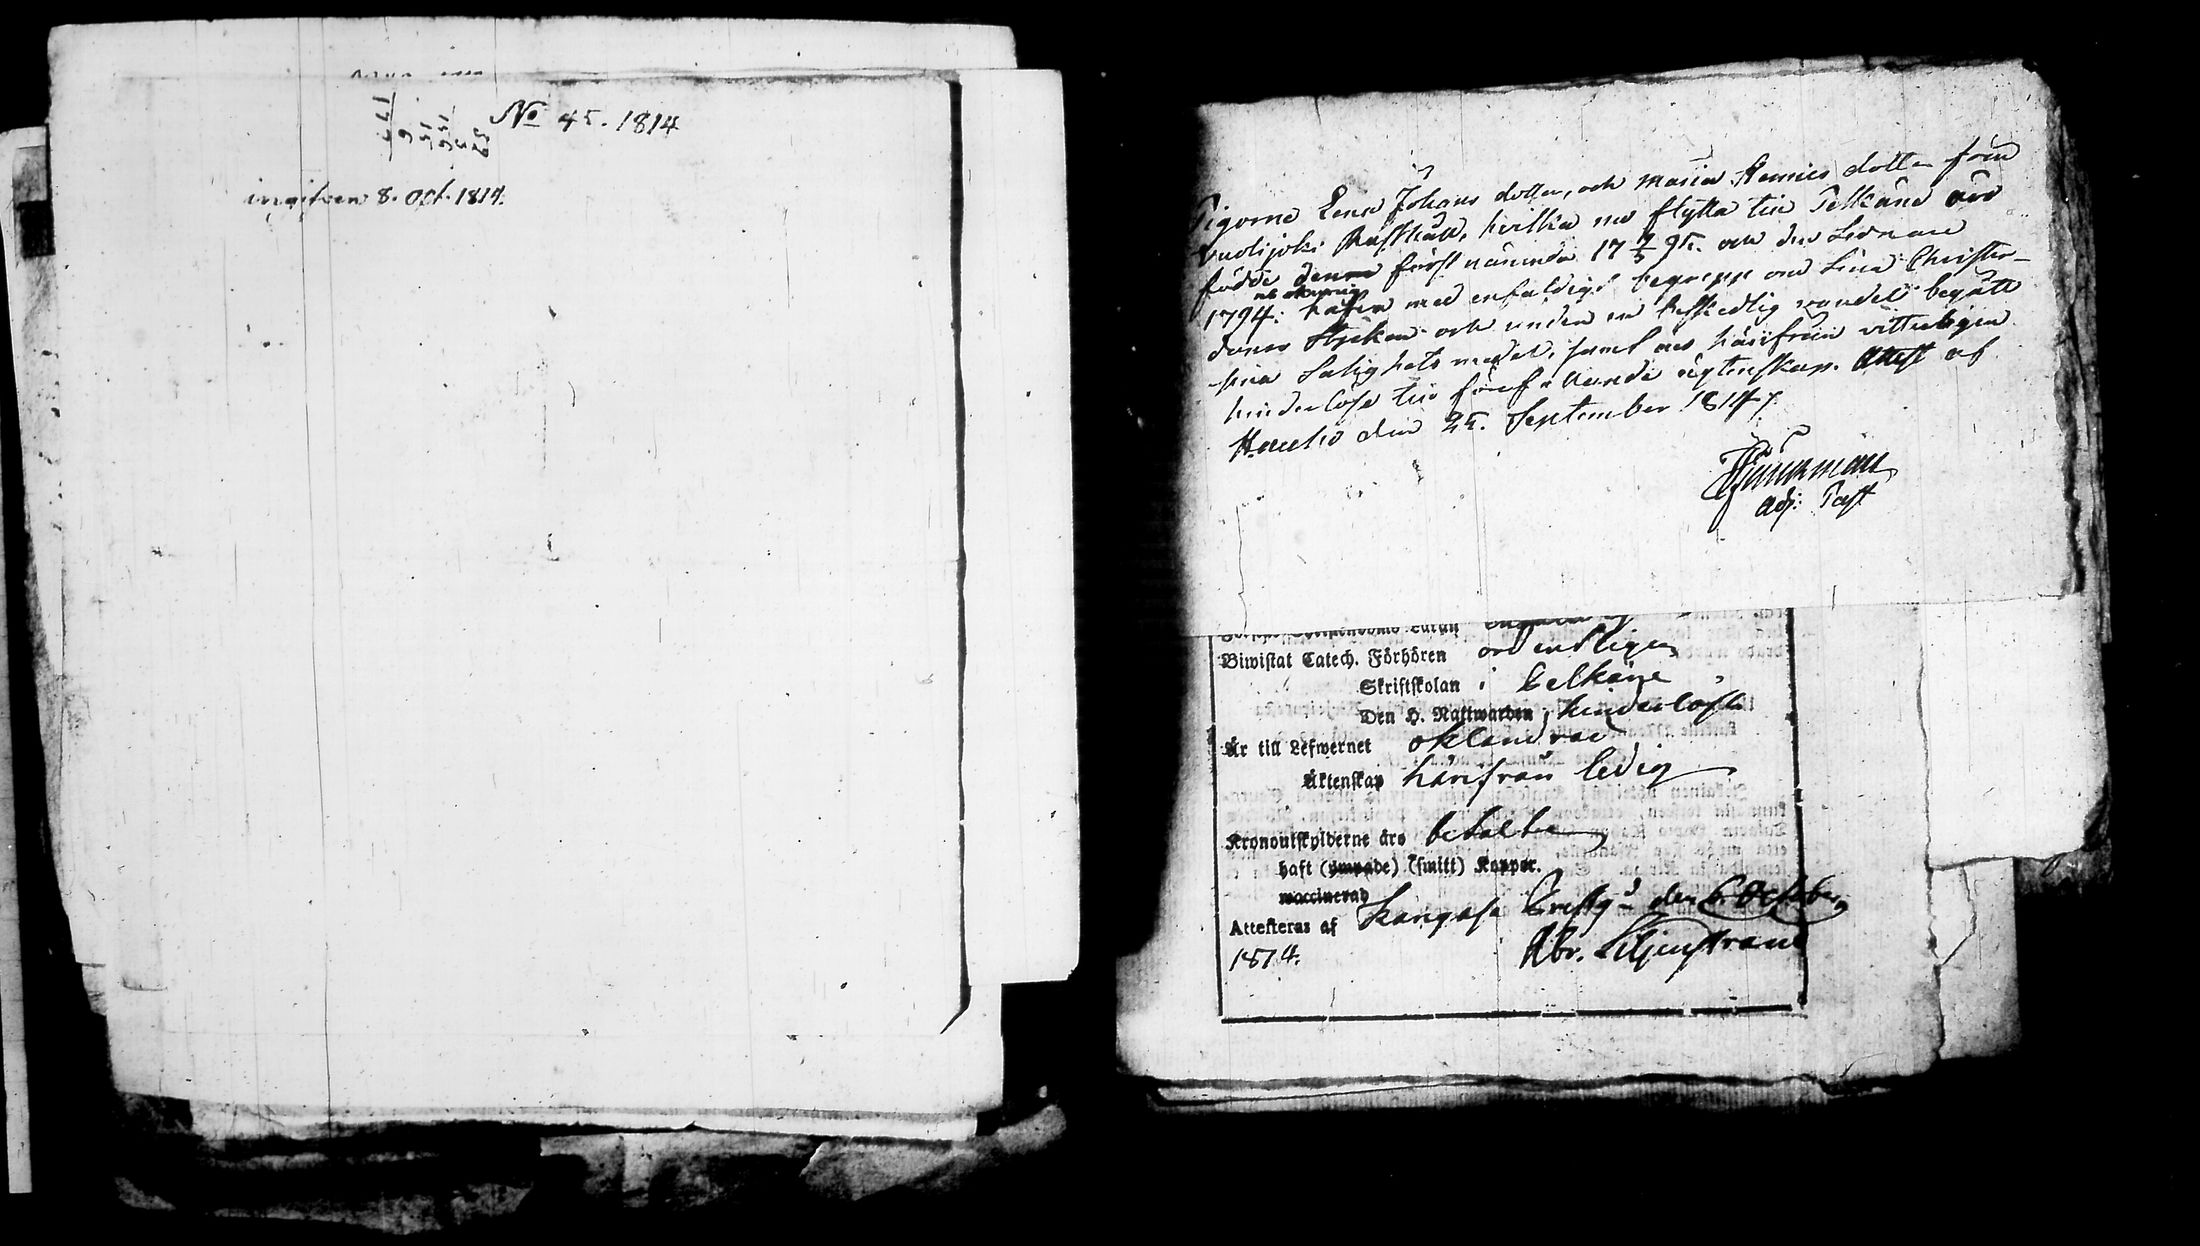 No 45. 1814
ingifven 8. Oct. 1814.
Pigorne Lena Johans dotter, och Maria Hennics dotter från
Vuolijoki Rusthåll, hvilka nu flytta till Pelkäne äro
födde denna förstnämnda 17 5/7 95. och den sednare
1794: hafva med enfaldigt begrepp om sina Christen-
doms stycken och under en beskedlig vandel begått
sina Salighets medel, samt äro härifrån vitterligen
hinderlösa till förefallande ägtenskap. Attest af
Hauho den 25. September 1814
Adj: Past
Biwistat Catech. Förhören ordentligen
Skriftskolan i Pelkäne
Den H. Nattwarden hinderlöst
Är till Lefwernet oklandrad
Äktenskap härifrån ledig
Kronoutskylderne äro betalte
haft (ympade) (smitt) Koppor.
waccinerad
Attesteras af Kangasa Prestgd den 6 October
1814. Abr. Liljenstrand